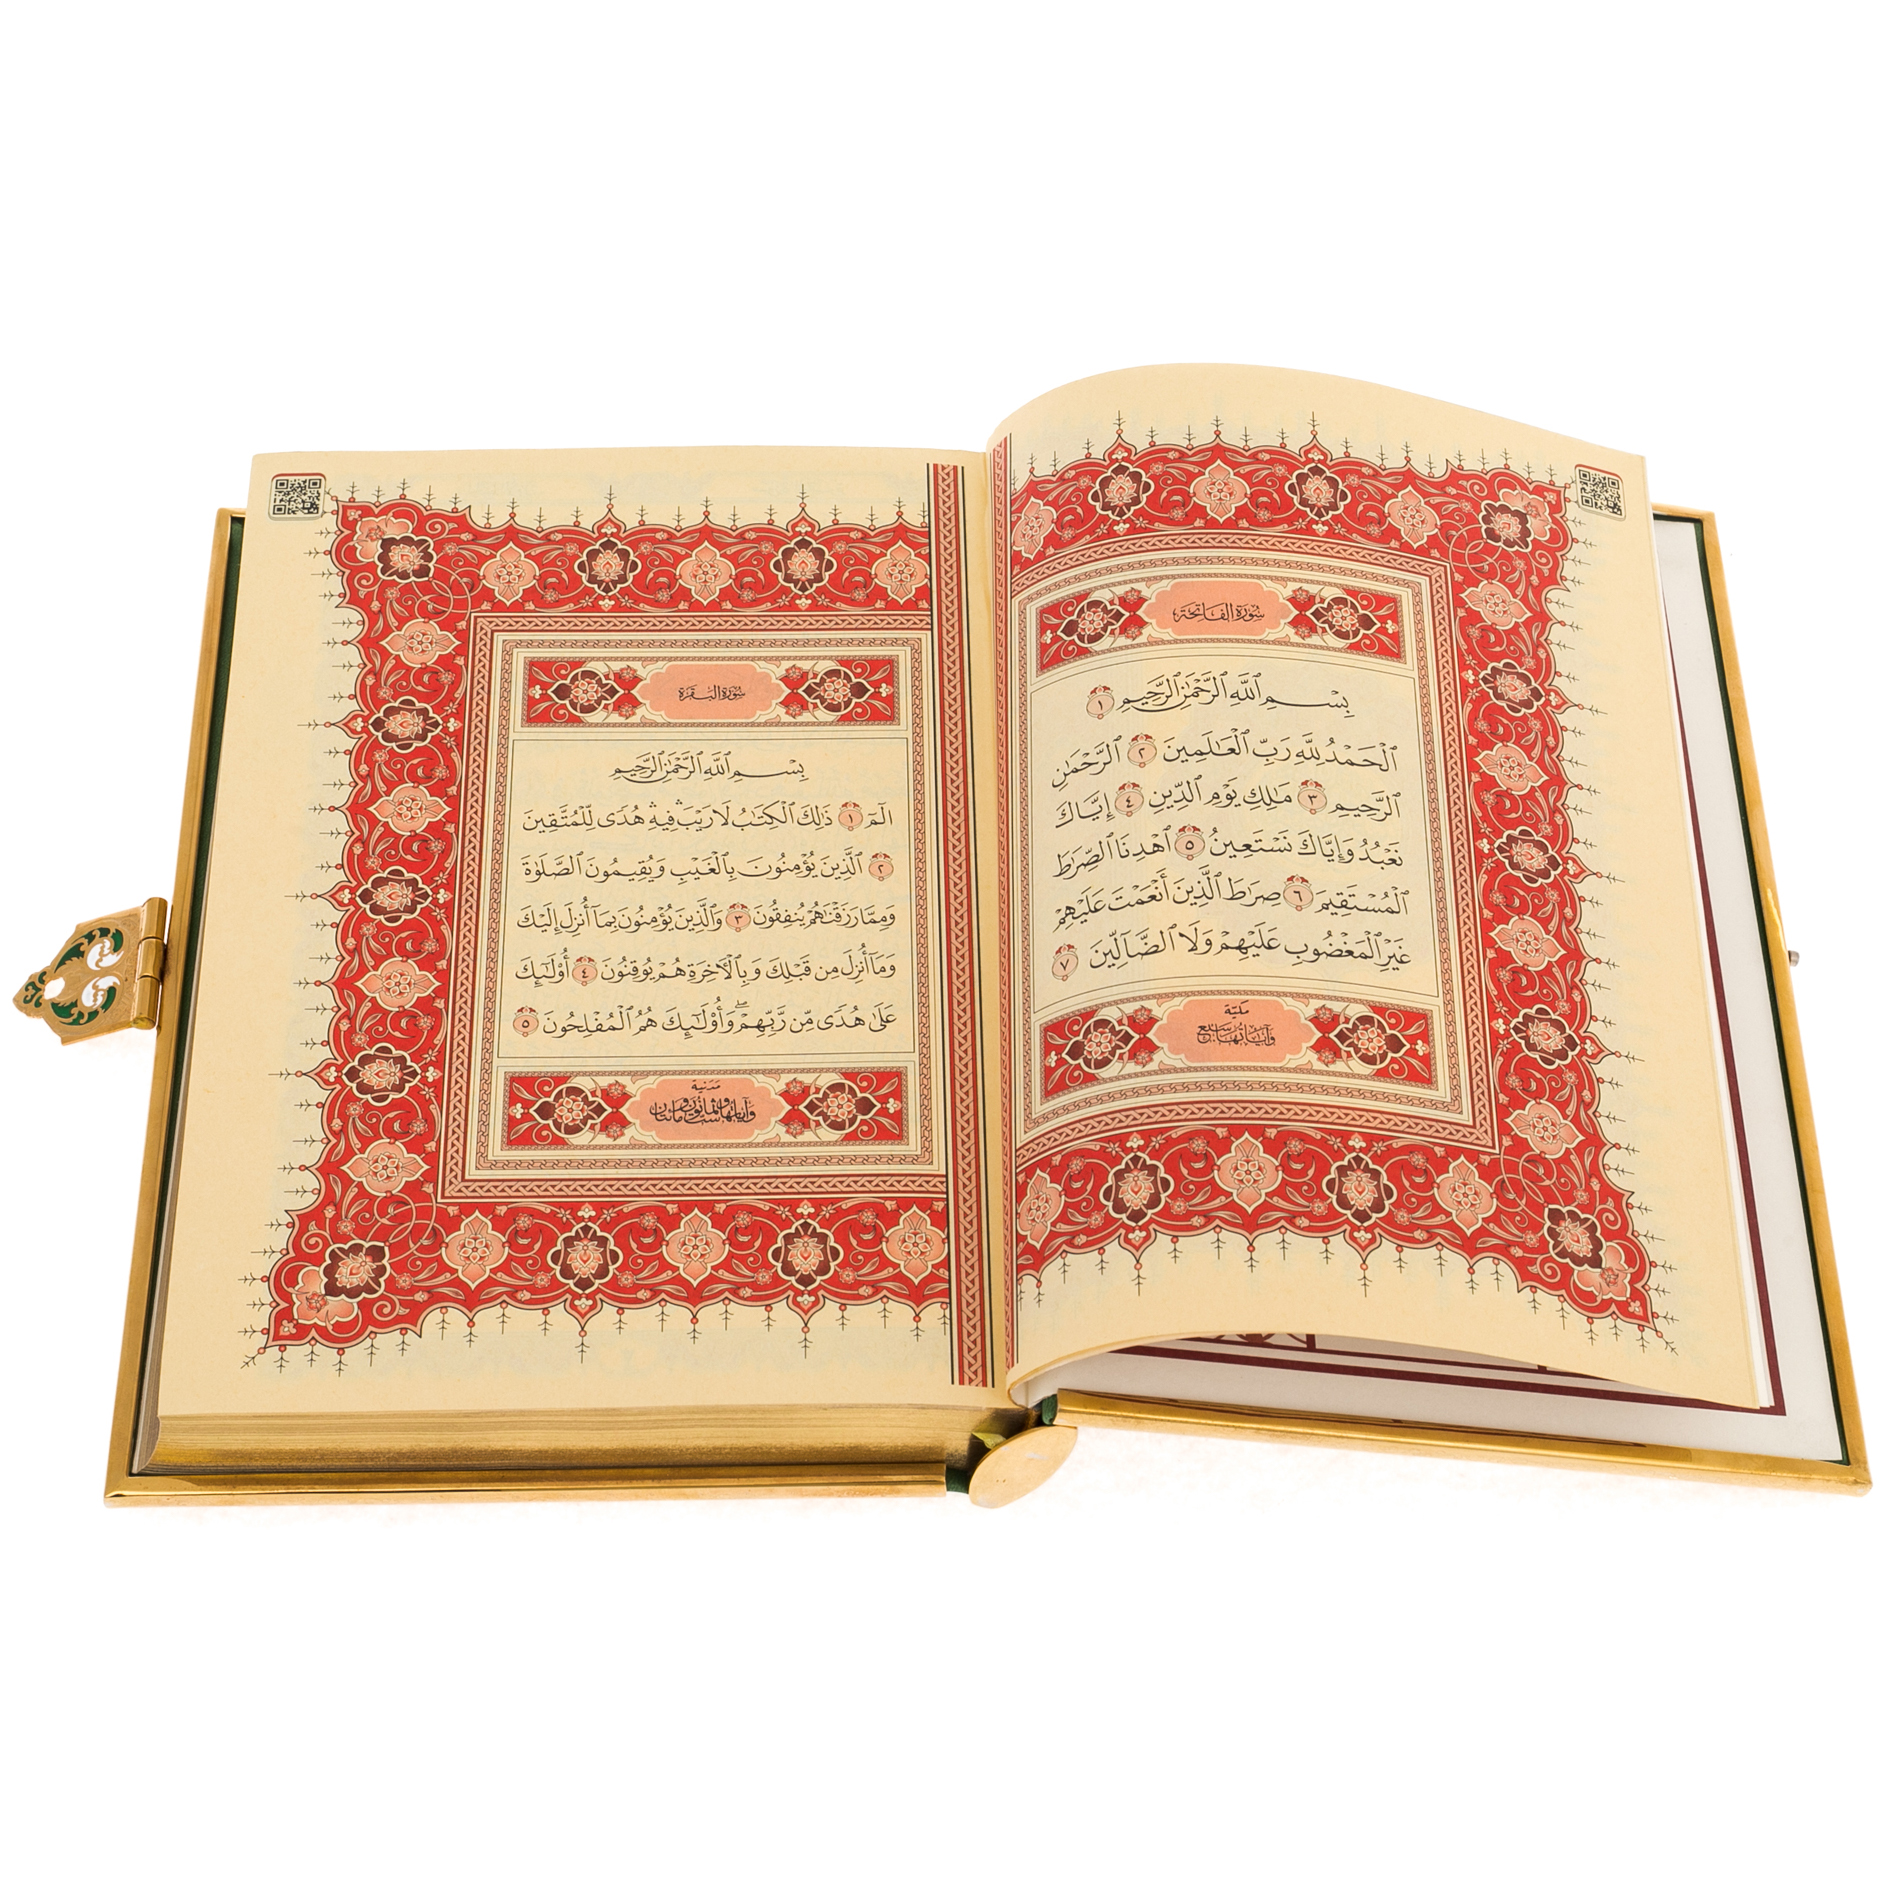 سُورَةُ الفَاتِحَةِ
بِسْمِ ٱللَّهِ ٱلرَّحْمَٰنِ ٱلرَّحِيمِ ١
ٱلْحَمْدُ لِلَّهِ رَبِّ ٱلْعَٰلَمِينَ ٢ ٱلرَّحْمَٰنِ
ٱلرَّحِيمِ ٣ مَٰلِكِ يَوْمِ ٱلدِّينِ ٤ إِيَّاكَ
نَعْبُدُ وَإِيَّاكَ نَسْتَعِينُ ٥ ٱهْدِنَا ٱلصِّرَٰطَ
ٱلْمُسْتَقِيمَ ٦ صِرَٰطَ ٱلَّذِينَ أَنْعَمْتَ عَلَيْهِمْ
غَيْرِ ٱلْمَغْضُوبِ عَلَيْهِمْ وَلَا ٱلضَّآلِّينَ ٧
مكيّة
وآياتها سبع
سُورَةُ البَقَرَةِ
بِسْمِ ٱللَّهِ ٱلرَّحْمَٰنِ ٱلرَّحِيمِ
الٓمٓ ١ ذَٰلِكَ ٱلْكِتَٰبُ لَا رَيْبَ ۛ فِيهِ ۛ هُدًى لِّلْمُتَّقِينَ
٢ ٱلَّذِينَ يُؤْمِنُونَ بِٱلْغَيْبِ وَيُقِيمُونَ ٱلصَّلَوٰةَ
وَمِمَّا رَزَقْنَٰهُمْ يُنفِقُونَ ٣ وَٱلَّذِينَ يُؤْمِنُونَ بِمَآ أُنزِلَ إِلَيْكَ
وَمَآ أُنزِلَ مِن قَبْلِكَ وَبِٱلْأَخِرَةِ هُمْ يُوقِنُونَ ٤ أُو۟لَٰٓئِكَ
عَلَىٰ هُدًى مِّن رَّبِّهِمْ ۖ وَأُو۟لَٰٓئِكَ هُمُ ٱلْمُفْلِحُونَ ٥
مدنية
وآياتها ست وثمانون ومائتان